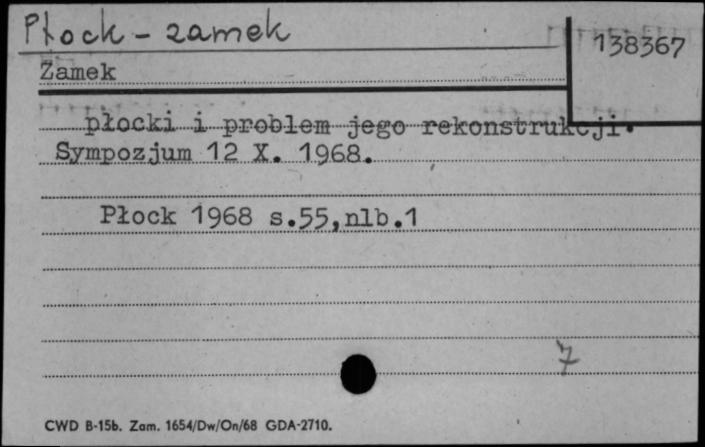 Płock - zamek
138367
Zamek
płocki i problem jego rekonstrukcji.
Sympozjum 12 X. 1968.
Płock 1968 s.55,nlb.1
7
CWD B-15b. Zam. 1654/Dw/On/68 GDA-2710.